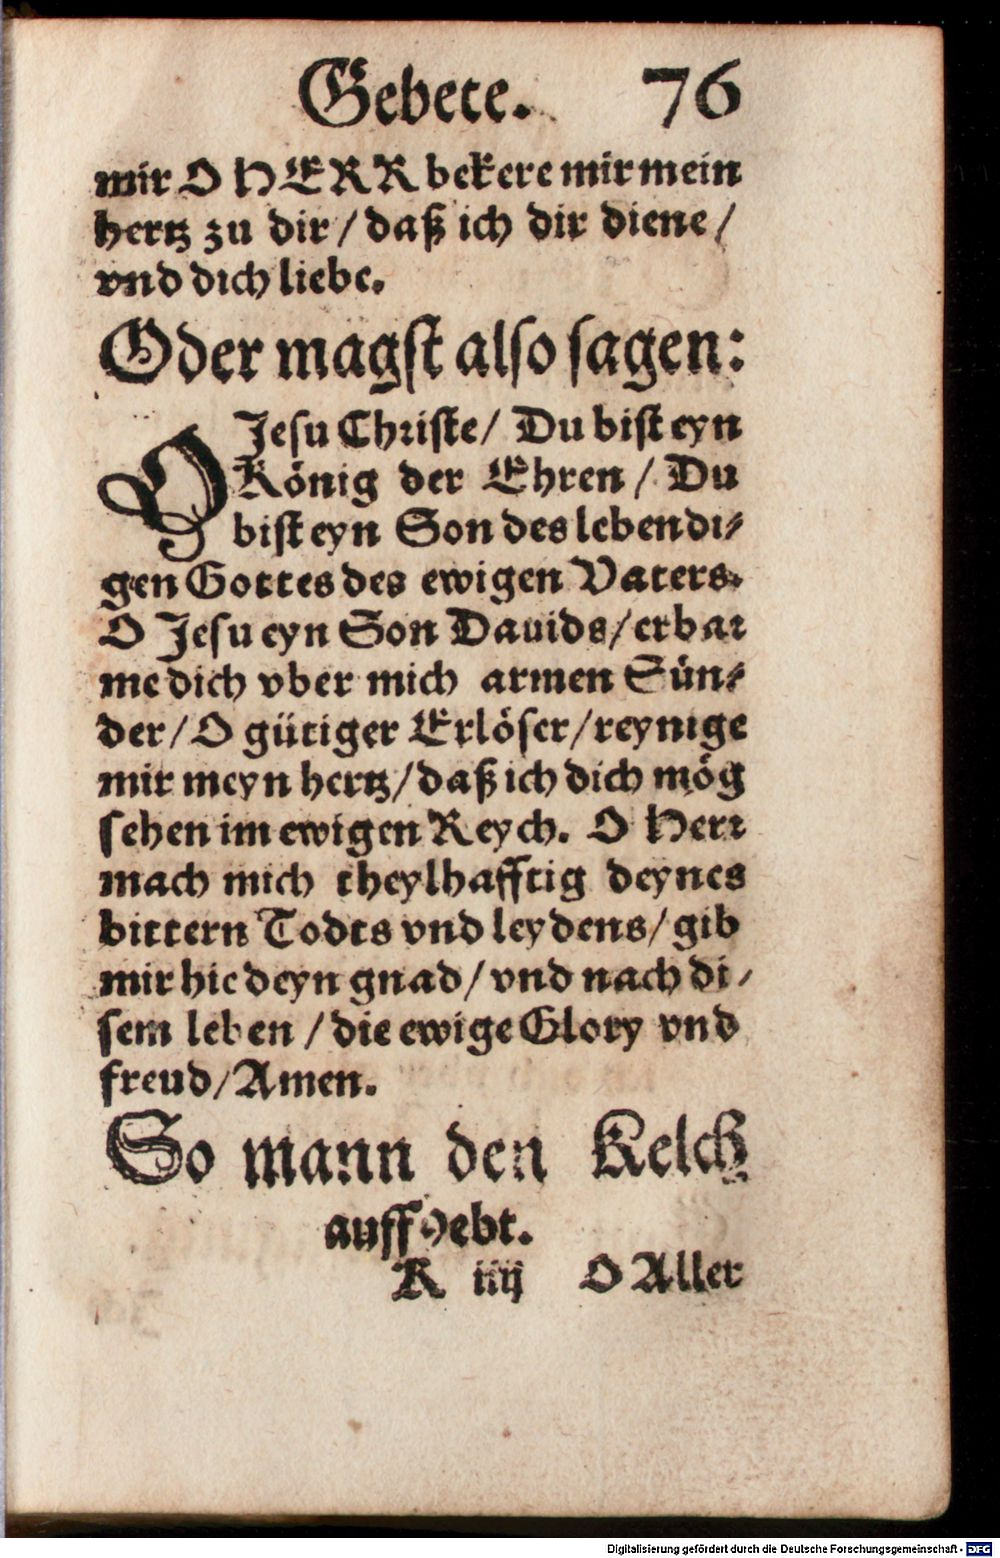 Gebete. 76
mir O HERR bekere mir mein
hertz zu dir / daß ich dir diene /
vnd dich liebe.
Oder magst also sagen:
O Jesu Christe / Du bist eyn
König der Ehren / Du
bist eyn Son des lebendi⸗
gen Gottes des ewigen Vaters.
O Jesu eyn Son Dauids / erbar
me dich vber mich armen Sün⸗
der / O gütiger Erlöser / reynige
mir meyn hertz / daß ich dich mög
sehen im ewigen Reych. O Herr
mach mich theylhafftig deynes
bittern Todts vnd leydens / gib
mir hie deyn gnad / vnd nach di⸗
sem leben / die ewige Glory vnd
freud / Amen.
So mann den Kelch
auffhebt.
K iiij O Aller
Digitalisierung gefördert durch die Deutsche Forschungsgemeinschaft - DFG